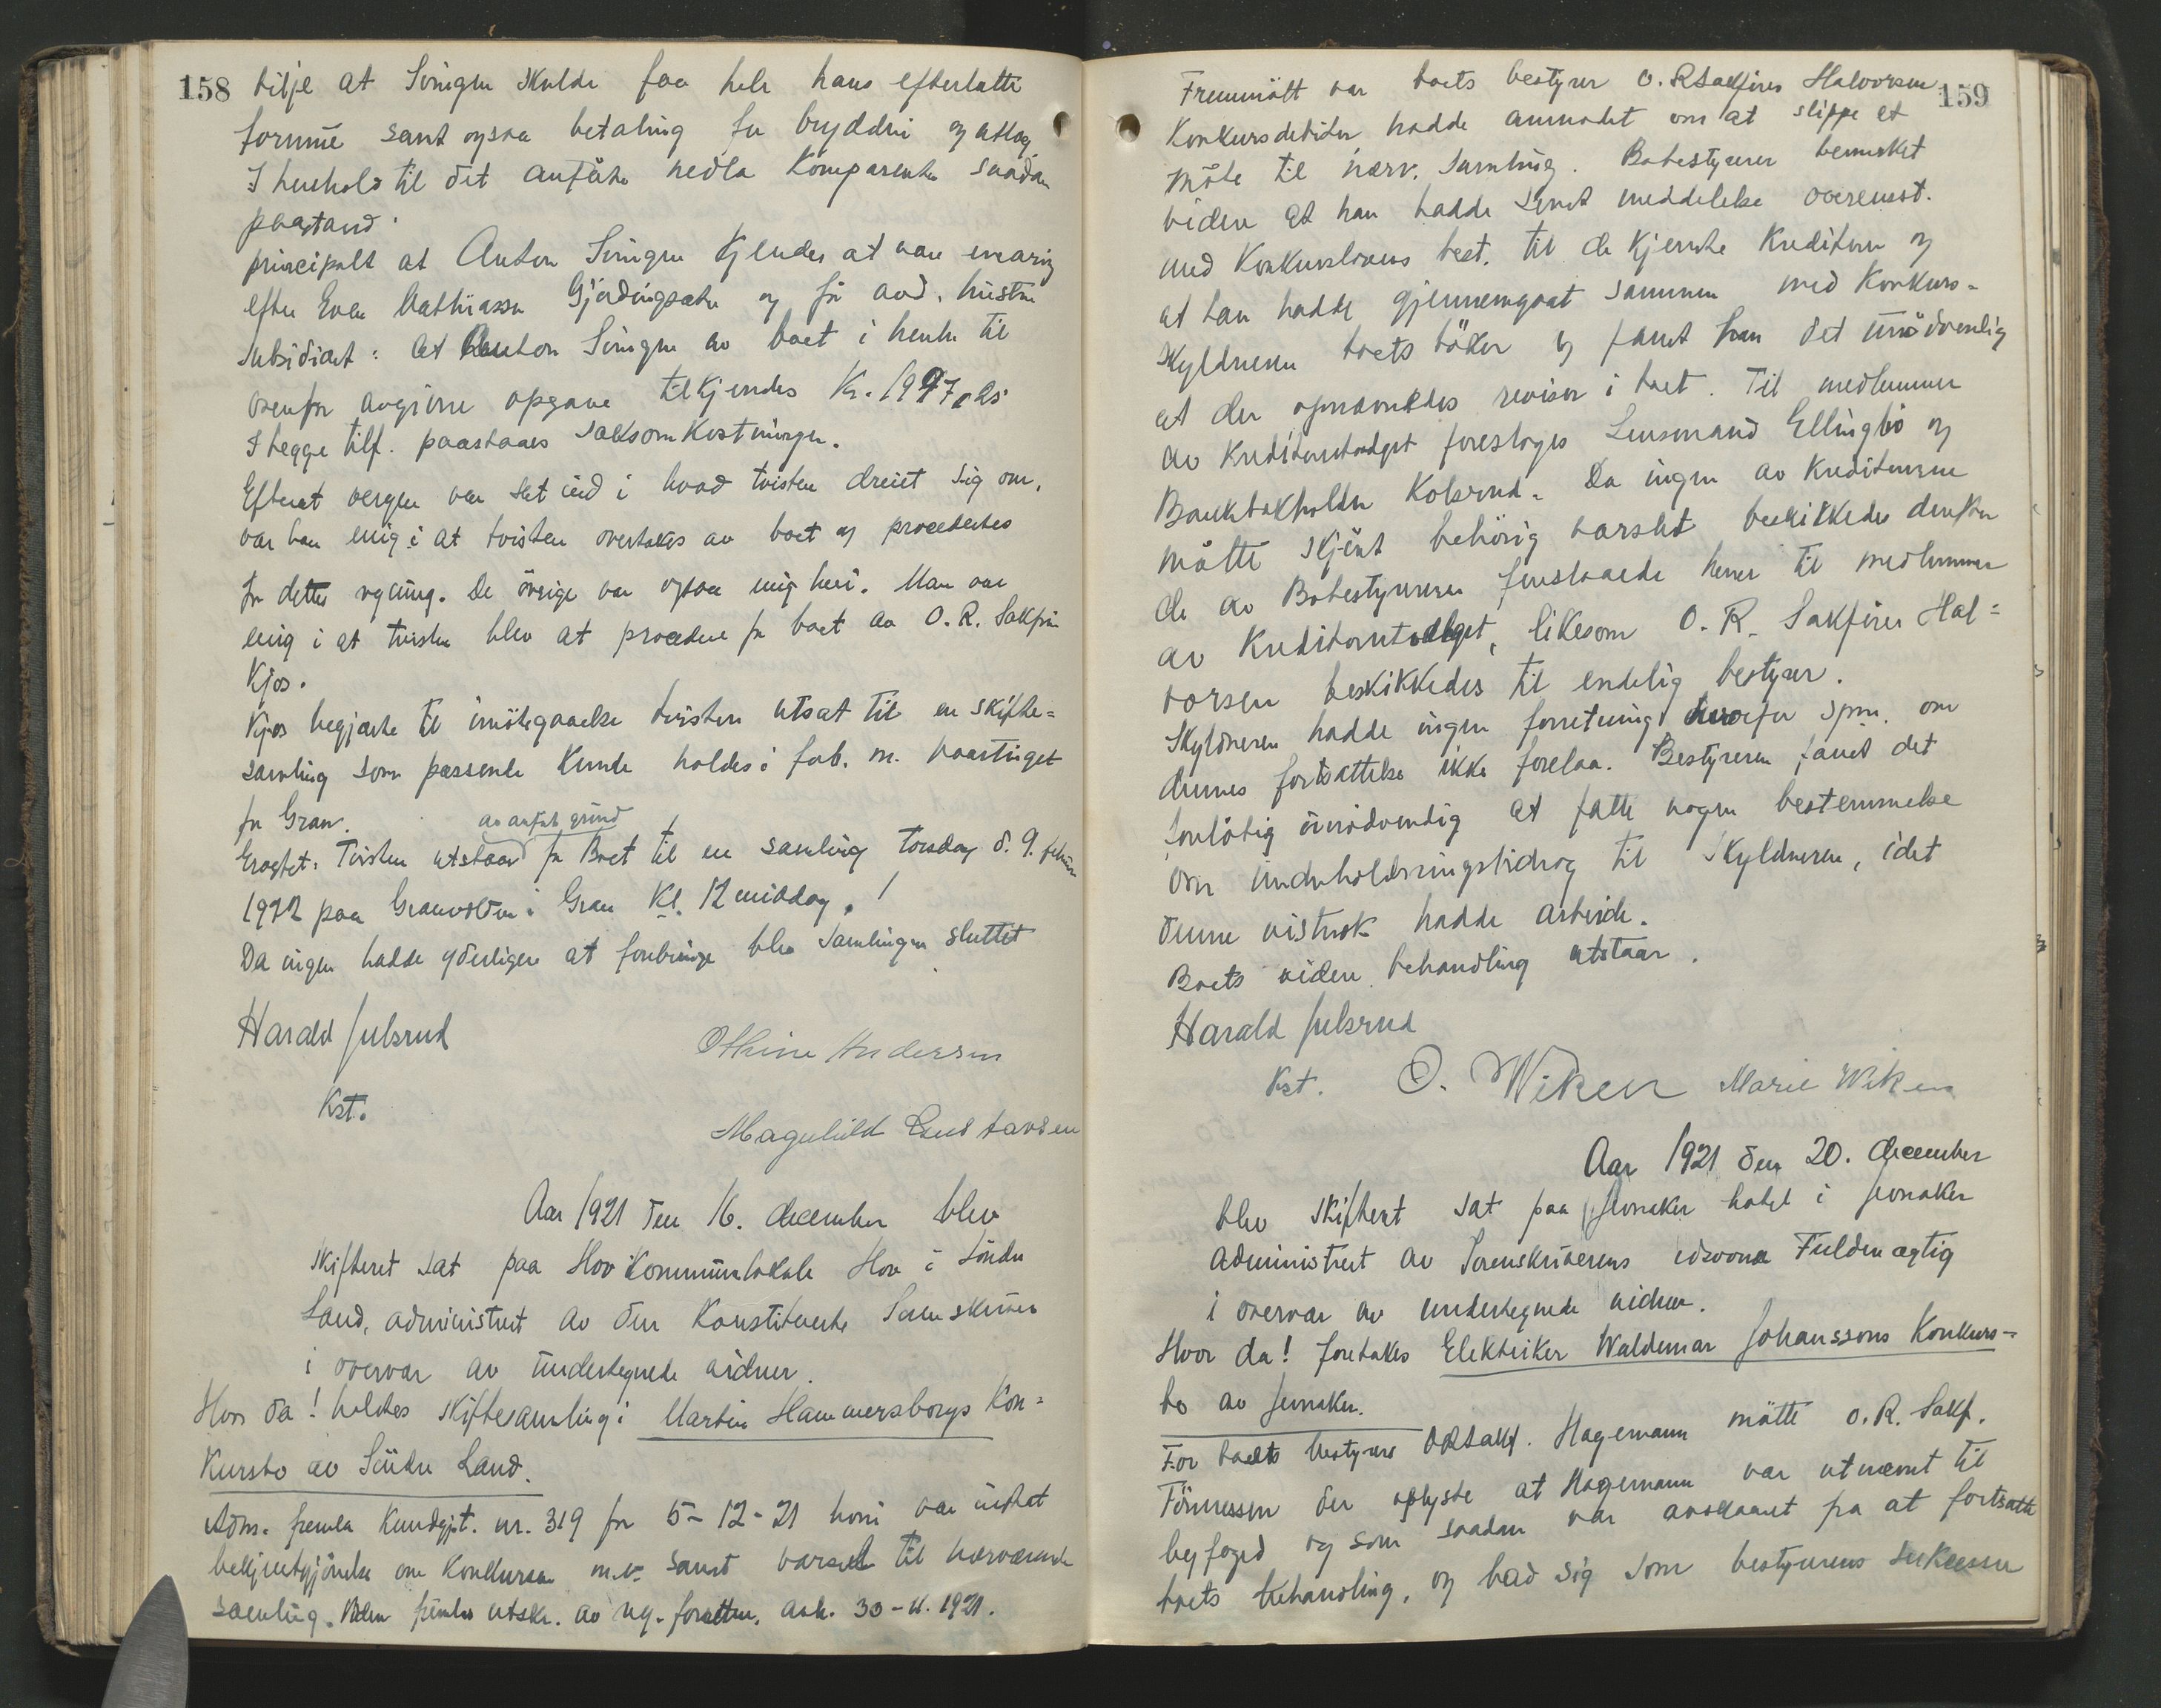 158
vilje at Svingen skulde faa hele hans efterlatte
formue samt ogsaa betaling for bryddri og utlæg
I henhold til det anførte nedla Komparenten saadan
paastand.
principalt at Anton Svingen kjendes at være enearving
efter Even Mathiassen Gjerdingsætre og før avd. hustru
Subsidiært: at Anton Svingen av boet i henh. til
ovenfor avgivne opgave tilkjendes Kr. 1997,25
I begge tilf. paastaaes saksomkostninger.
Efterat vergen var sat ind i hvad tvisten dreiet sig om,
var han enig i at tvisten overtokes av boet og procedertes
for dettes regning. De øvrige var ogsaa enig heri. Man var
enig i at tvisten blev at procedere for boet av O. R. Sakfører
Kjos.
Kjos begjærte til imøtegaaelse tvisten utsat til en skifte=
samling som passende kunde holdes i forb. m. høsttinget
for Gran.
av anført grund
Eragtet: Tvisten utstaar for Boet til en samling torsdag d. 9. februar
1922 paa Granvolden i Gran Kl. 12 middag.
Da ingen hadde yderligere at frembringe blev samlingen sluttet.
Harald Julsrud
Othine Andersen
Kst.
Magnhild Gustavsen
Aar 1921 den 16. december blev
skifteret sat paa Hov Kommunelokale Hov i Søndre
Land, administrert av den Konstituerte Sorenskriver
i overvær av undertegnede vidner.
Hvor da! holdtes skiftesamling i Martin Hammersborgs Kon=
kursbo av Søndre Land.
Adm. fremla Kundgjt. nr. 319 for 5-12-21 hvori var indtat
bekjentgjørelse om Konkursen m.v. samt varsel til nærværende
samling. Viden fremlas utskr. av reg. forretn. avh. 30-11.1921.
159
Fremmøtt var boets bestyrer O. R Sakfører Halvorsen
Konkursdebitor hadde anmodet om at slippe at
møte til nærv. samling. Bobestyrerer bemerket
videre at han hadde sendt meddelelse overenst.
med Konkurslovens best. til de kjendte Kreditorer og
at han hadde gjennemgaat sammen med Konkurs-
skyldneren boets bøker og fandt han det unødvendig
at der opnævntes revisor i boet. Til medlemmer
av Kreditorutvalget foresloges Lensmand Ellingbø og
Bankbokholder Kolsrud. Da ingen av Kreditorerne
møtte skjønt behørig varslet beskikkedes derefter
de av Bobestyreren foreslaaede herrer til medlemmer
av Kreditorutvalget, likesom O. R. Sakfører Hal=
vorsen beskikkedes til endelig bestyrer.
Skyldneren hadde ingen forretning hvorfor spm. om
dennes fortsættelse ikke forelaa. Bestyreren fandt det
foreløbig unødvendig at fatte nogen bestemmelse
om underholdningsbidrag til skyldneren, idet
denne vistnok hadde arbeide.
Boets videre behandling utstaar.
Harald Julsrud
Kst. O. Wiken Marie Wiken
Aar 1921 den 20. december
blev skifteret sat paa Jevnaker hotel i Jevnaker
administrert av Sorenskriverens edsvorne Fuldmægtig
i overvær av undertegnede vidner.
Hvor da! foretokes Elektriker Waldemar Johanssons Konkurs-
bo av Jevnaker.
For boets bestyrer ORSakf. Hagemann møtte O. R. Sakf.
Tønnessen der oplyste at Hagemann var utnævnt til
byfogd og som saadan var avskaaret fra at fortsætte
boets behandling, og bad sig som bestyrerens